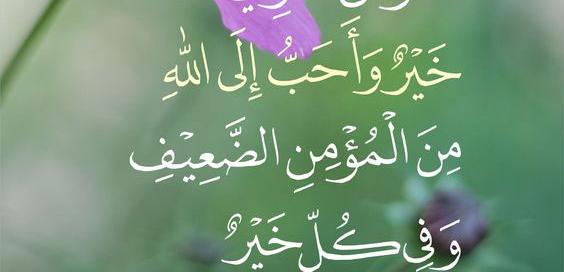 خَيْرٌ وَأَحَبُّ إِلَى اللهِ
مِنَ الْمُؤْمِنِ الضَّعِيْفِ
وَفِي كُلِّ خَيْرٌ